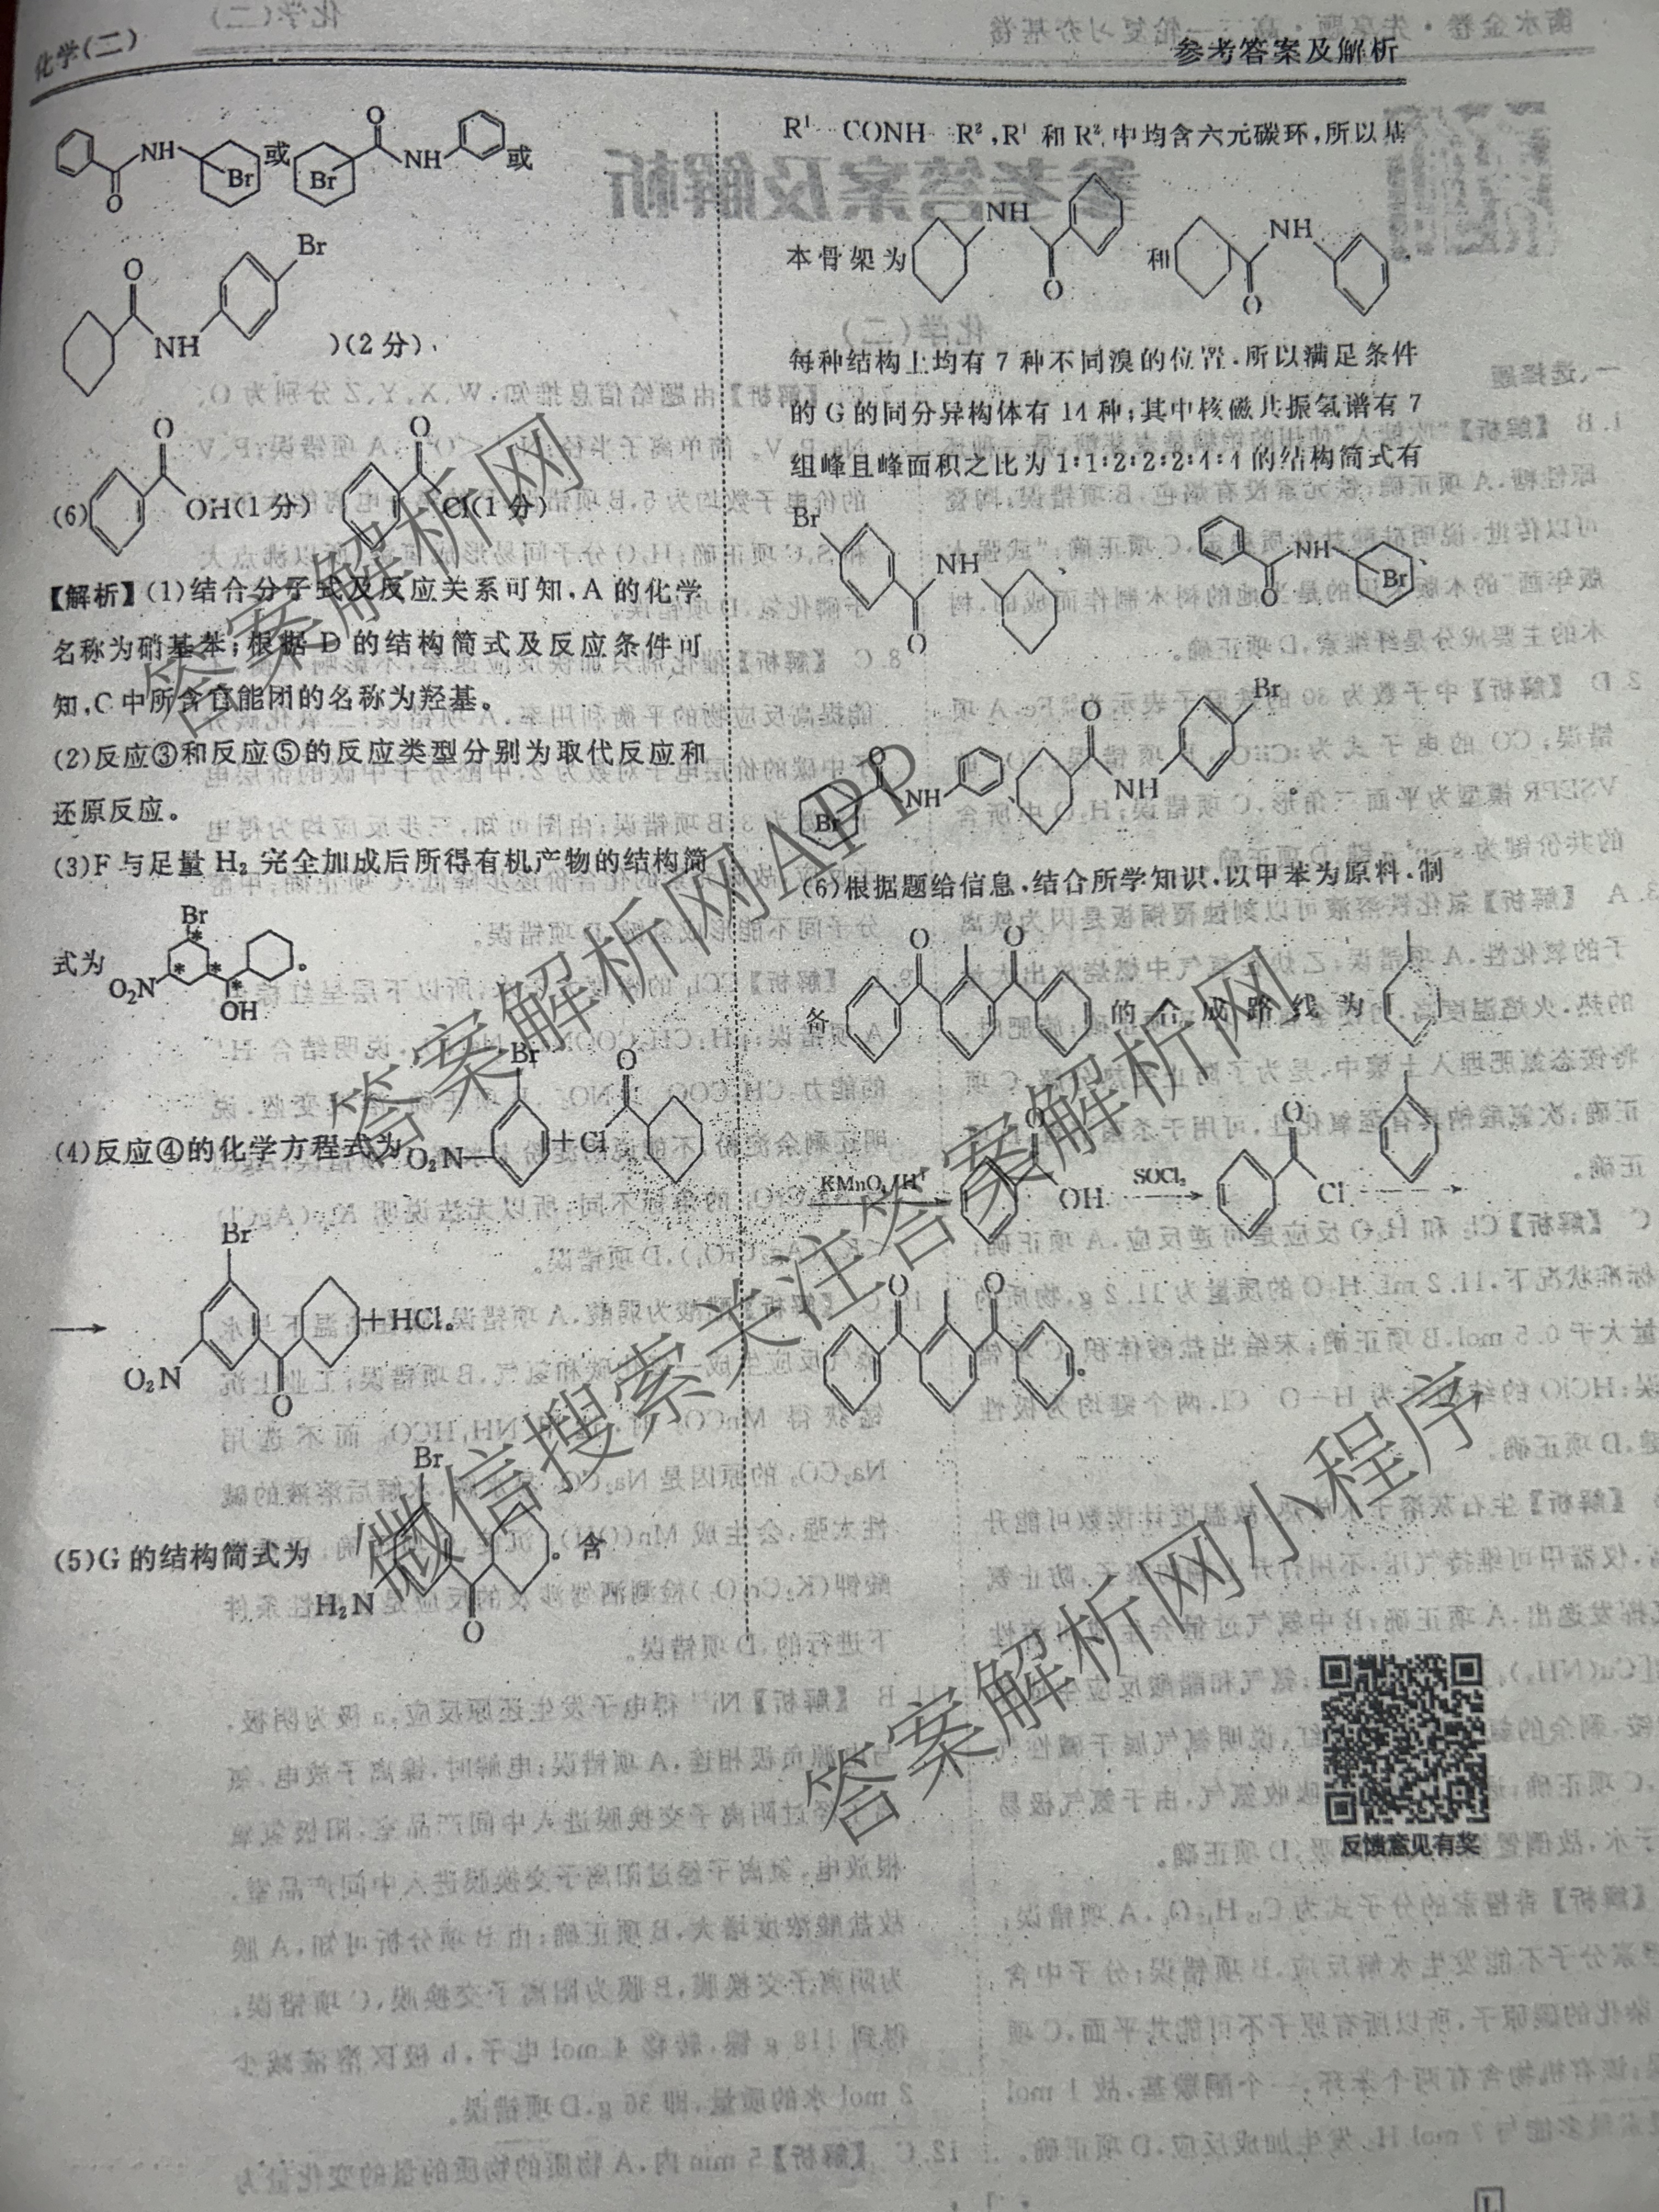 化学(二)
参考答案及解析
NH
Br
或
Br
O
NH
或
O
O
Br
NH
)(2分)
(6)
O
OH(1分)
O
Cl(1分)
【解析】(1)结合分子式及反应关系可知,A的化学
名称为硝基苯;根据D的结构简式及反应条件可
知,C中所含官能团的名称为羟基。
(2)反应③和反应⑤的反应类型分别为取代反应和
还原反应。
(3)F与足量H₂完全加成后所得有机产物的结构简
式为
Br
*
*
*
*
O₂N
OH
。
(4)反应④的化学方程式为
Br
O₂N
+Cl
O
Br
O₂N
O
+HCl。
(5)G的结构简式为
Br
H₂N
O
。含
R¹—CONH—R²,R¹和R²中均含六元碳环,所以基
本骨架为
NH
O
和
NH
O
每种结构上均有7种不同溴的位置,所以满足条件
的G的同分异构体有14种;其中核磁共振氢谱有7
组峰且峰面积之比为1:1:2:2:2:4:4的结构简式有
Br
NH
O
、
NH
O
Br
、
O
NH
Br
、
O
NH
Br
。
(6)根据题给信息,结合所学知识,以甲苯为原料,制
备
O
O
的合成路线为
KMnO₄/H⁺
O
OH
SOCl₂
O
Cl
O
O
。
反馈意见有奖
答案解析网
答案解析网APP
微信搜索关注答案解析网
答案解析网小程序